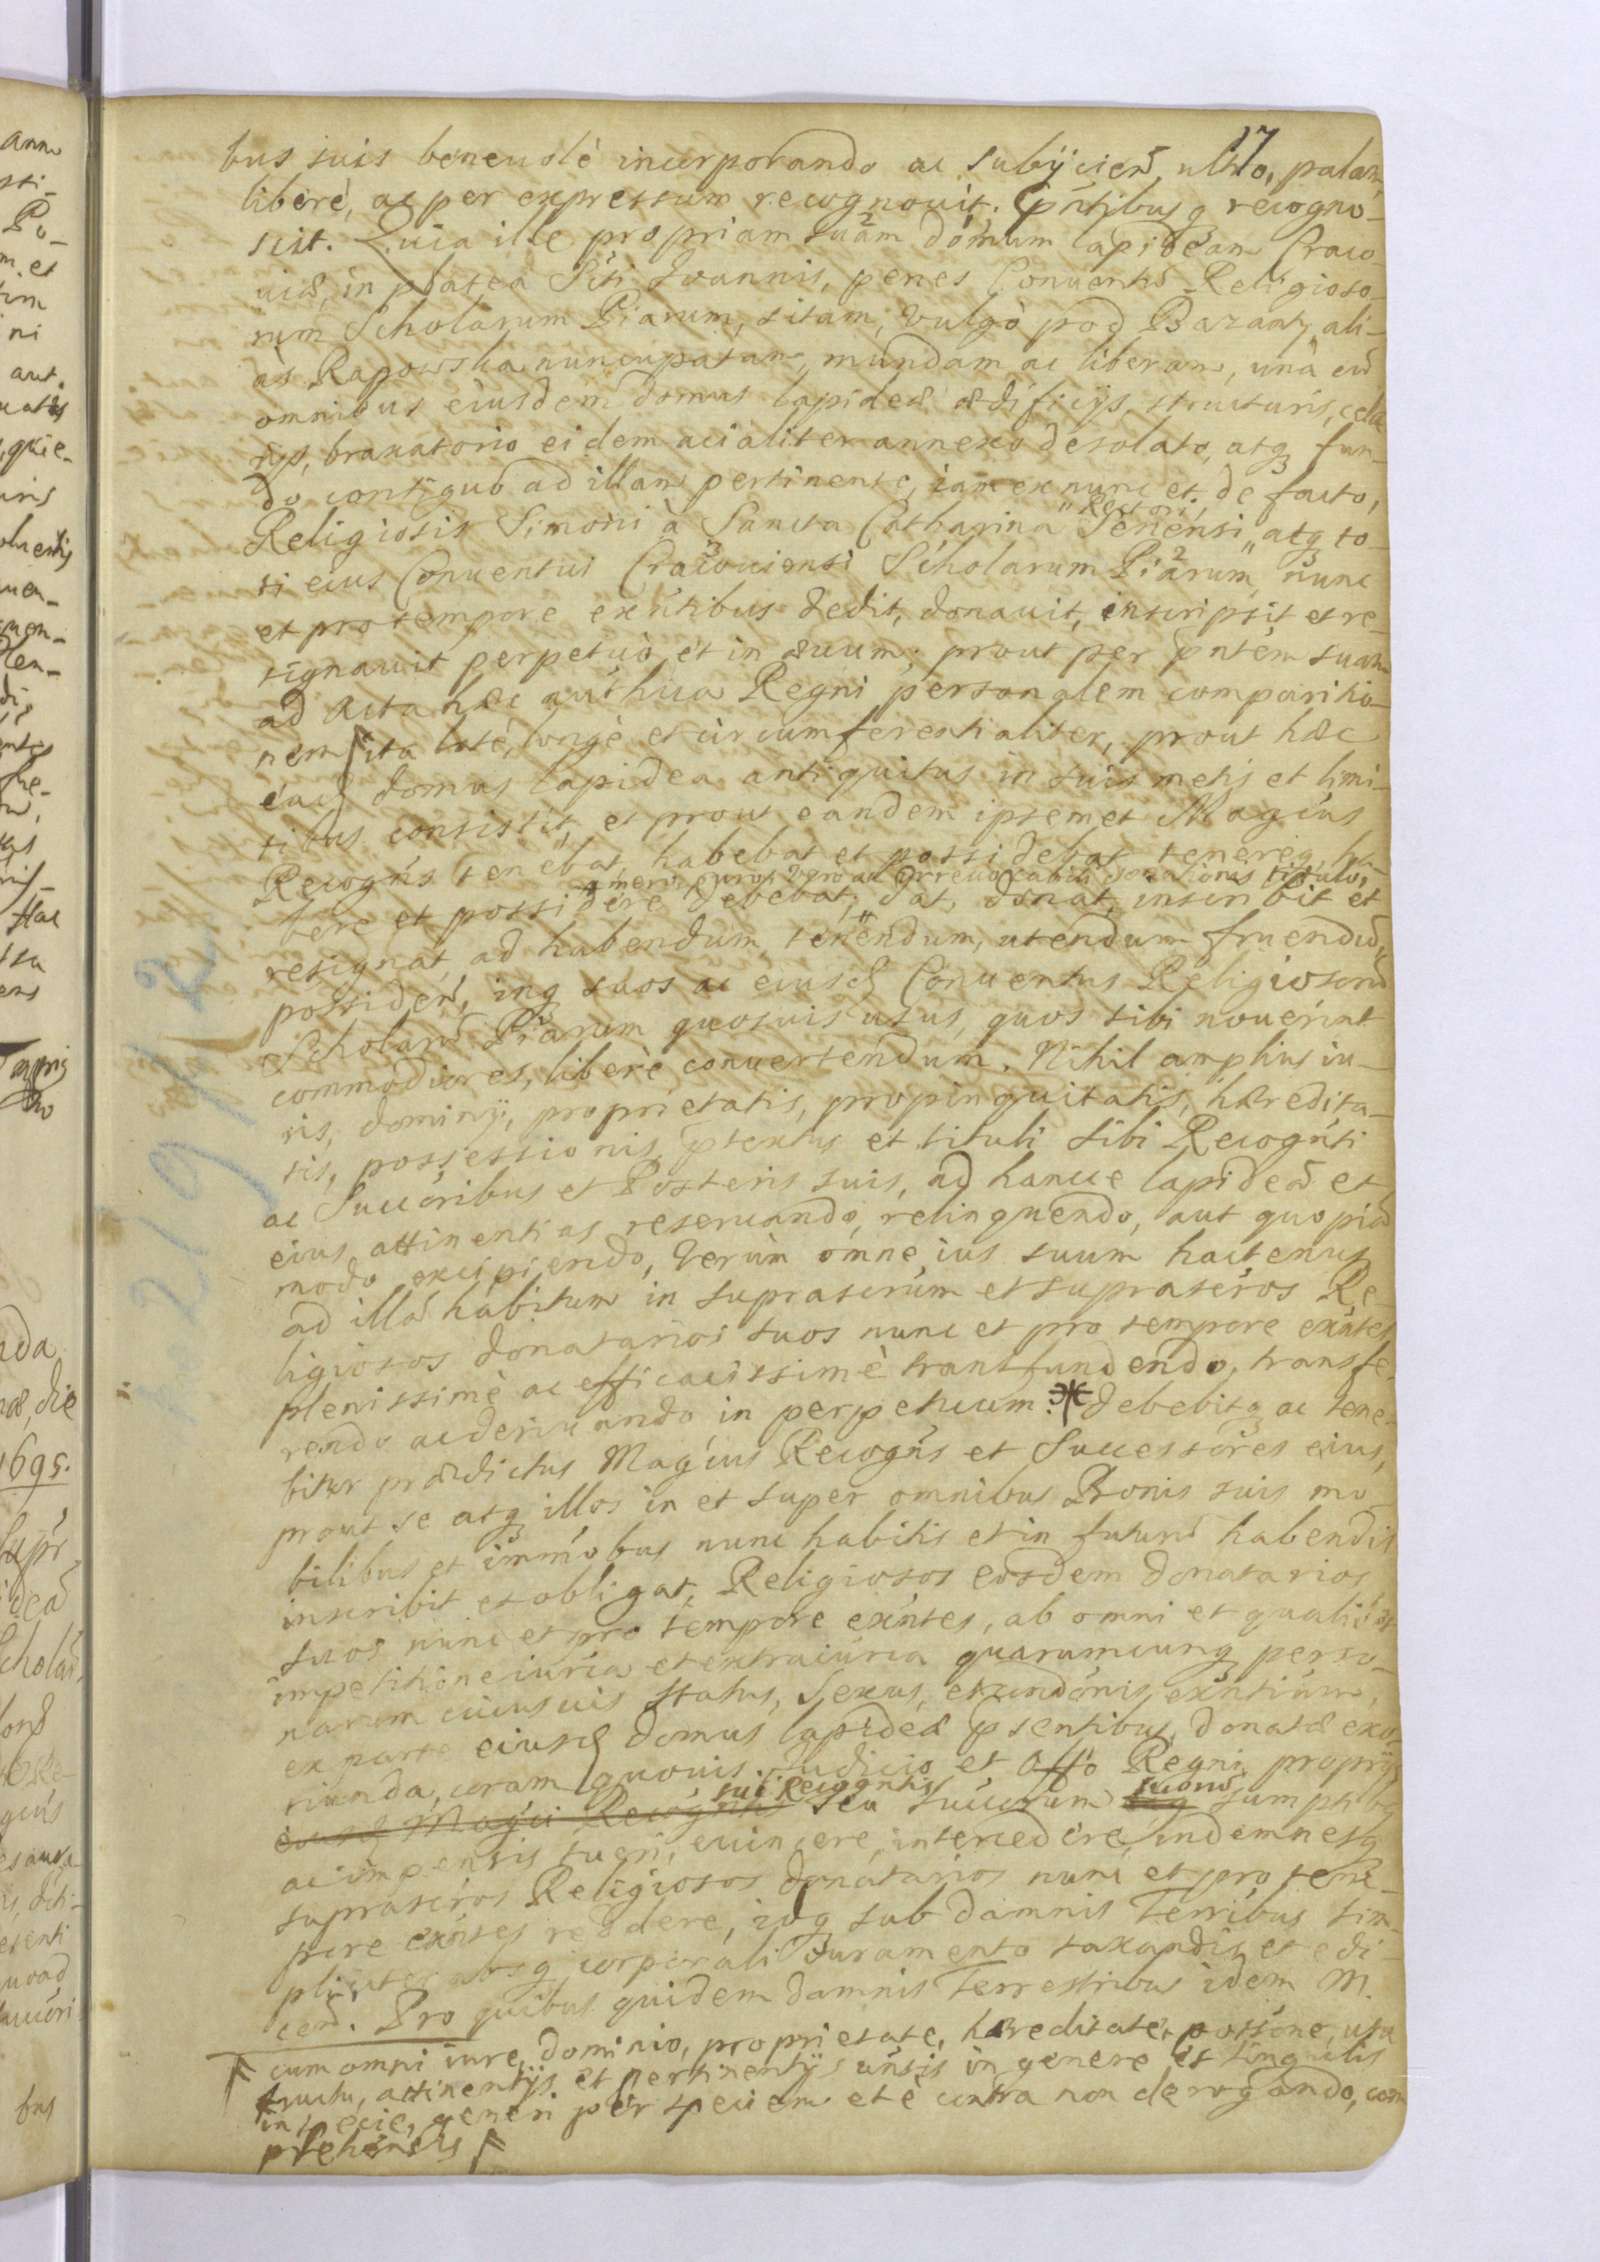 17
bus suis beneuolè incorporando ac subÿcien, ultrò, palam,
liberè, ac per expressum recognouit. Pntibusq recogno-
scit. Quia ille propriam suam domum lapideam Craco-
uiæ, in platea Sti Joannis, penes Conuentũ Religioso-
rum Scholarum Piarum, sitam, vulgò pod Bazanty, ali-
às Rapowska nuncupatam, mundam ac liberam, unà cũ
omnibus eiusdem domus lapideæ ædificÿs, structuris, cella
rÿs, braxatorio eidem acialiter annexo desolato, atq fun-
do contiguo ad illam pertinente, iam ex nunc et de facto,
Religiosis Simoni à Sancta Catharina Senensi "Rectori" atq to-
ti eius Conuentui Cracouiensi Scholarum Piarum nunc
et pro tempore exñtibus dedit, donauit, inscripsit et re-
signauit perpetuò et in æuum; prout per pntem suam
ad Acta hæc authica Regni personalem comparitio-
nem ita latè, longè et circumferentialiter, prout hæc
ead domus lapidea antiquitus in suis metis et limi-
tibus consistit, et prout eandem ipsemet Magcus
Recogns tenebat, habebat et possidebat, tenereq, ha-
mero, puro, vero ac irreuocabili donationis titulo,
bere et possidere debebat; dat, donat, inscribit et
resignat, ad habendum, tenendum, utendum fruendũ,
possiden, inq suos ac eiusd Conuentus Religiosorũ
Scholarũ Piarum quosuis usus, quos sibi nouerint
commodiores, liberè conuertendum. Nihil amplius iu-
ris, dominÿ, proprietatis, propinquitatis, hæredita-
tis, possessionis, ptextus et tituli sibi Recognti
ac Succoribus et Posteris suis, ad hancce lapideã et
eius attinentias reseruando, relinquendo, aut quopiã
modo excipiendo, Verùm omne ius suum hactenus
ad illã habitum in suprascrum et suprascros Re-
ligiosos donatarios suos nunc et pro tempore exntes
plenissimè ac efficacissimè transfundendo, transfe-
rendo ac deriuando in perpetuum. debebitq ac tene-
bitur prædictus Magcus Recogns et Successores eius,
prout se atq illos in et super omnibus Bonis suis mo-
bilibus et immobus nunc habitis et in futurũ habendis
inscribit et obligat, Religiosos eosdem donatarios
suos nunc et pro tempore exntes, ab omni et qualibet
impetitione iurica et extraiurica quarumcunq perso-
narum cuiusuis status, sexus, et condonis exntium,
ex parte eiusd domus lapideæ psentibus donatæ exo-
riunda, coram quouis Iudicio et Offo Regni proprÿs
eiusd Magci Recognti sui Recogntis seu succorum suorũ sumptibus
ac impensis tueri, euincere, intercedere, indemnesq
suprascros Religiosos donatarios nunc et pro tem-
pore exntes reddere, idq sub damnis Terribus sim-
pliciter absq corporali Iuramento taxandis et edi-
cend. Pro quibus quidem damnis Terrestribus idem M.
cum omni iure, dominio, proprietate, hæreditate, possone, usu
fructu, attinentÿs et pertinentÿs unsis in genere et singulis
in specie, generi per speciem et è contra non derogando, com
prehensis